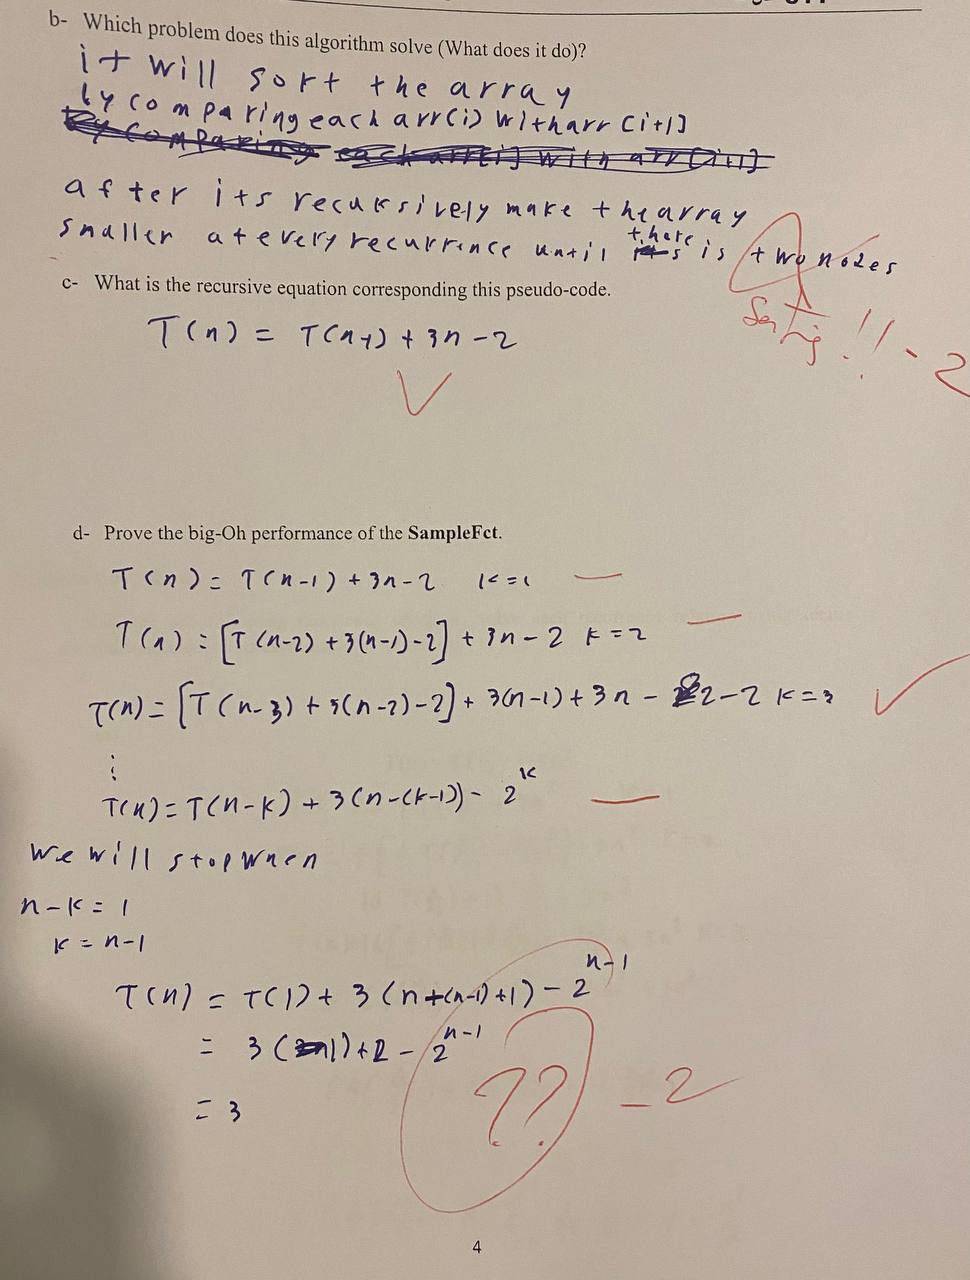 b- Which problem does this algorithm solve (What does it do)?
it will sort the array
by comparing each arr(i) with arr [i+1]
by comparing each arr[i] with arr[i+1]
after its recursively make the array
smaller at every recurrence until there is two nodes
Sorting!! -2
c- What is the recursive equation corresponding this pseudo-code.
T(n) = T(n-1) + 3n - 2
d- Prove the big-Oh performance of the SampleFct.
T(n) = T(n-1) + 3n - 2 k=1
T(n) = [T(n-2) + 3(n-1) - 2] + 3n - 2 k=2
T(n) = [T(n-3) + 3(n-2) - 2] + 3(n-1) + 3n - 2 - 2 k=3
⋮
T(n) = T(n-k) + 3(n-(k-1)) - 2^k
we will stop when
n-k = 1
k = n-1
T(n) = T(1) + 3(n+(n-1)+1) - 2^n-1
= 3( 1)+2 - 2^n-1
= 3
?? -2
4